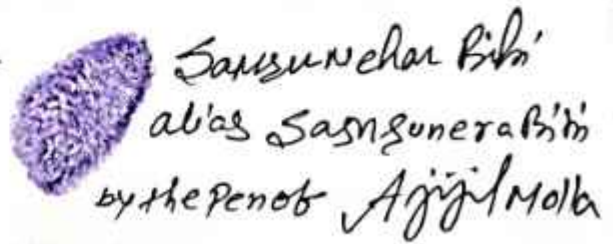 Samsunehar Bibi
alias Samsunera Bibi
by the Pen of Ajijul Molla